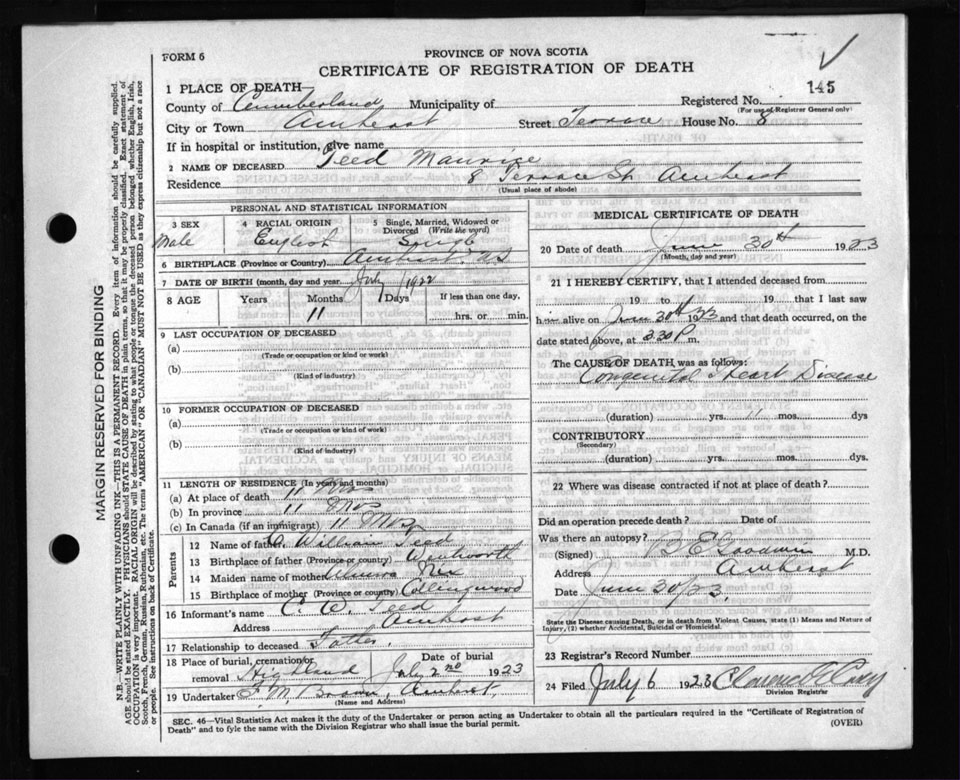 FORM 6
PROVINCE OF NOVA SCOTIA
CERTIFICATE OF REGISTRATION OF DEATH
145
1 PLACE OF DEATH—
County of Cumberland Municipality of Registered No.
(For use of Registrar General only)
City or Town Amherst Street Terrace House No. 8
If in hospital or institution, give name
2 NAME OF DECEASED Teed Maurice
Residence 8 Terrace St. Amherst
(Usual place of abode)
PERSONAL AND STATISTICAL INFORMATION
3 SEX 4 RACIAL ORIGIN 5 Single, Married, Widowed or Divorced (Write the word)
Male English Single
6 BIRTHPLACE (Province or Country) Amherst, N.S
7 DATE OF BIRTH (month, day and year) July 1922
8 AGE Years Months Days If less than one day,
11 hrs. or min.
9 LAST OCCUPATION OF DECEASED
(a)
(Trade or occupation or kind or work)
(b)
(Kind of industry)
10 FORMER OCCUPATION OF DECEASED
(a)
(Trade or occupation or kind of work)
(b)
(Kind of industry)
11 LENGTH OF RESIDENCE (In years and months)
(a) At place of death 11 Mos
(b) In province 11 Mos
(c) In Canada (if an immigrant) 11 Mos
Parents
12 Name of father William Teed
13 Birthplace of father (Province or country) Wentworth
14 Maiden name of mother
15 Birthplace of mother (Province or country) Collingwood
16 Informant's name Teed
Address Amherst
17 Relationship to deceased Father
18 Place of burial, cremation or removal Highland Date of burial July 2nd 1923
19 Undertaker F. M. Brown, Amherst,
(Name and Address)
MEDICAL CERTIFICATE OF DEATH
20 Date of death June 30th 1923
(Month, day and year)
21 I HEREBY CERTIFY, that I attended deceased from
19 to 19 that I last saw
him alive on June 30th 1923 and that death occurred, on the
date stated above, at 3.30 P m.
The CAUSE OF DEATH was as follows:
Congenital Heart Disease
(duration) yrs. 11 mos. dys
CONTRIBUTORY
(Secondary)
(duration) yrs. mos. dys
22 Where was disease contracted if not at place of death?
Did an operation precede death? Date of
Was there an autopsy?
(Signed) Goodwin M.D.
Address Amherst
Date June 30/23.
State the Disease causing Death, or in death from Violent Causes, state (1) Means and Nature of
Injury, (2) whether Accidental, Suicidal or Homicidal.
23 Registrar's Record Number
24 Filed July 6 1923
Division Registrar
SEC. 46—Vital Statistics Act makes it the duty of the Undertaker or person acting as Undertaker to obtain all the particulars required in the "Certificate of Registration of
Death" and to fyle the same with the Division Registrar who shall issue the burial permit.
(OVER)
MARGIN RESERVED FOR BINDING
N.B.—WRITE PLAINLY WITH UNFADING INK—THIS IS A PERMANENT RECORD. Every item of information should be carefully supplied.
AGE should be stated EXACTLY. PHYSICIANS should STATE CAUSE OF DEATH in plain terms, so that it may be properly classified. Exact statement of
OCCUPATION is very important. RACIAL ORIGIN will be described by stating to what people or tongue the deceased person belonged whether English, Irish,
Scotch, French, German, Russian, Ruthenian, etc. The terms "AMERICAN" or "CANADIAN" MUST NOT BE USED as they express citizenship but not a race
or people. See instructions on back of Certificate.